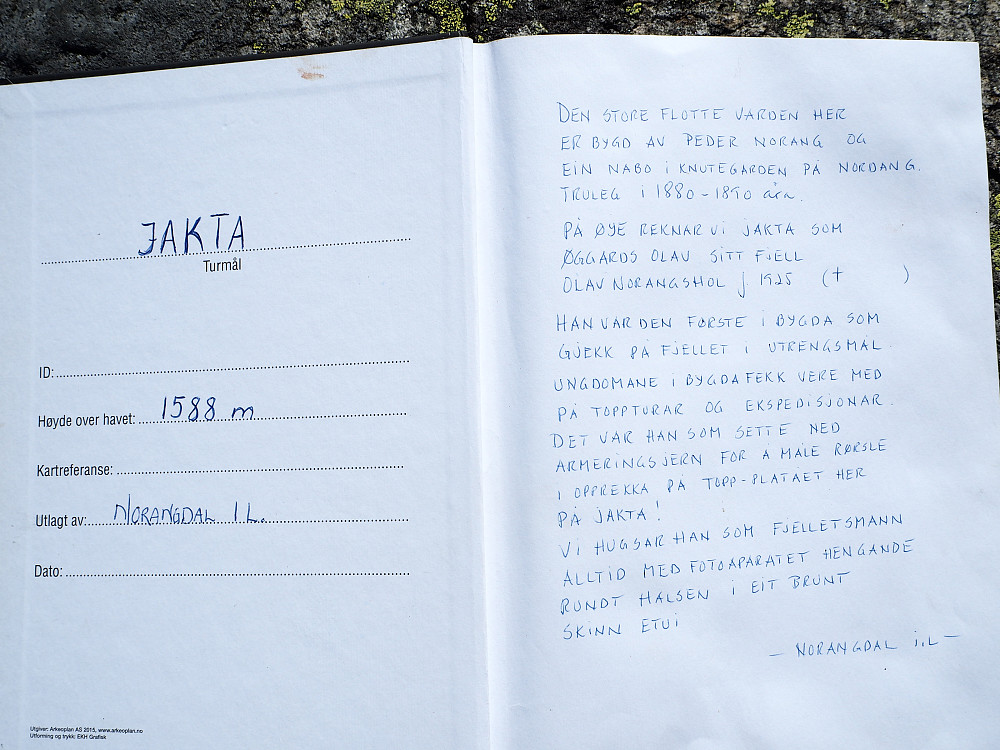 JAKTA
Turmål
ID:
Høyde over havet: 1588 m
Kartreferanse:
Utlagt av: NORANGDAL I L.
Dato:
Utgiver: Arkeoplan AS 2015, www.arkeoplan.no
Utforming og trykk: EKH Grafisk
DEN STORE FLOTTE VARDEN HER
ER BYGD AV PEDER NORANG OG
EIN NABO I KNUTEGARDEN PÅ NORDANG.
TRULEG I 1880-1890 åra.
PÅ ØYE REKNAR VI JAKTA SOM
ØGGARDS OLAV SITT FJELL
OLAV NORANGSHOL f 1925 († )
HAN VAR DEN FØRSTE I BYGDA SOM
GJEKK PÅ FJELLET I UTRENGSMÅL.
UNGDOMANE I BYGDA FEKK VERE MED
PÅ TOPPTURAR OG EKSPEDISJONAR.
DET VAR HAN SOM SETTE NED
ARMERINGSJERN FOR Å MÅLE RØRSLE
I OPPREKKA PÅ TOPP-PLATÅET HER
PÅ JAKTA!
VI HUGSAR HAN SOM FJELLETSMANN
ALLTID MED FOTOAPARATET HENGANDE
RUNDT HALSEN I EIT BRUNT
SKINN ETUI
— NORANGDAL i.L —